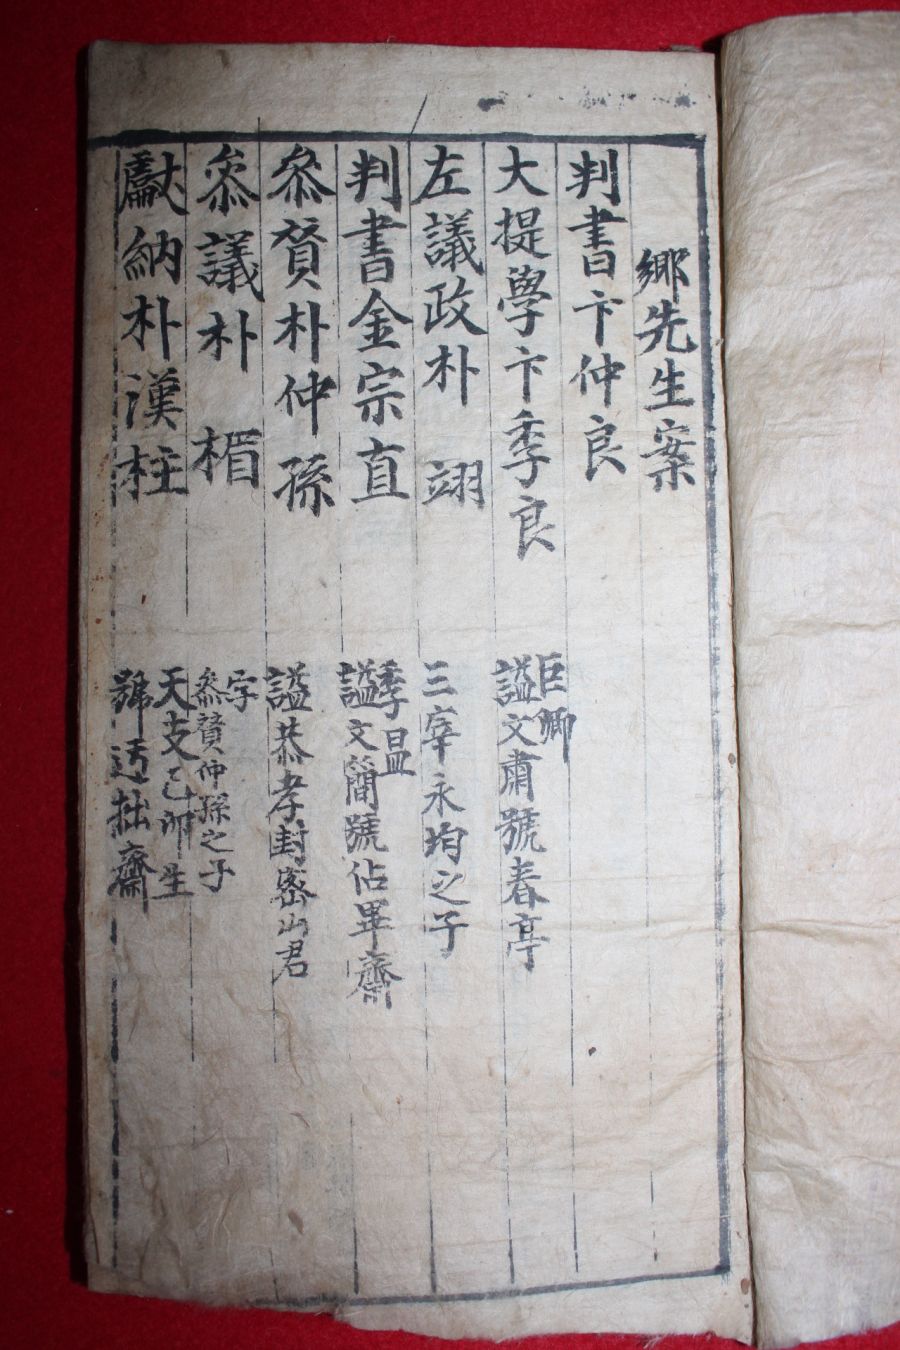 鄉先生案
判書卞仲良
大提學卞季良
巨卿
謚文肅號春亭
左議政朴翊
三宰永均之子
判書金宗直
季昷
謚文簡號佔畢齋
叅賛朴仲孫
謚恭孝封密山君
叅議朴楣
字
叅賛仲孫之子
獻納朴漢柱
天支己卯生
號迃拙齋